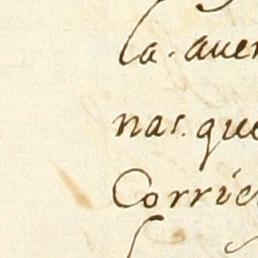 la. auer
nas. que
Corrie